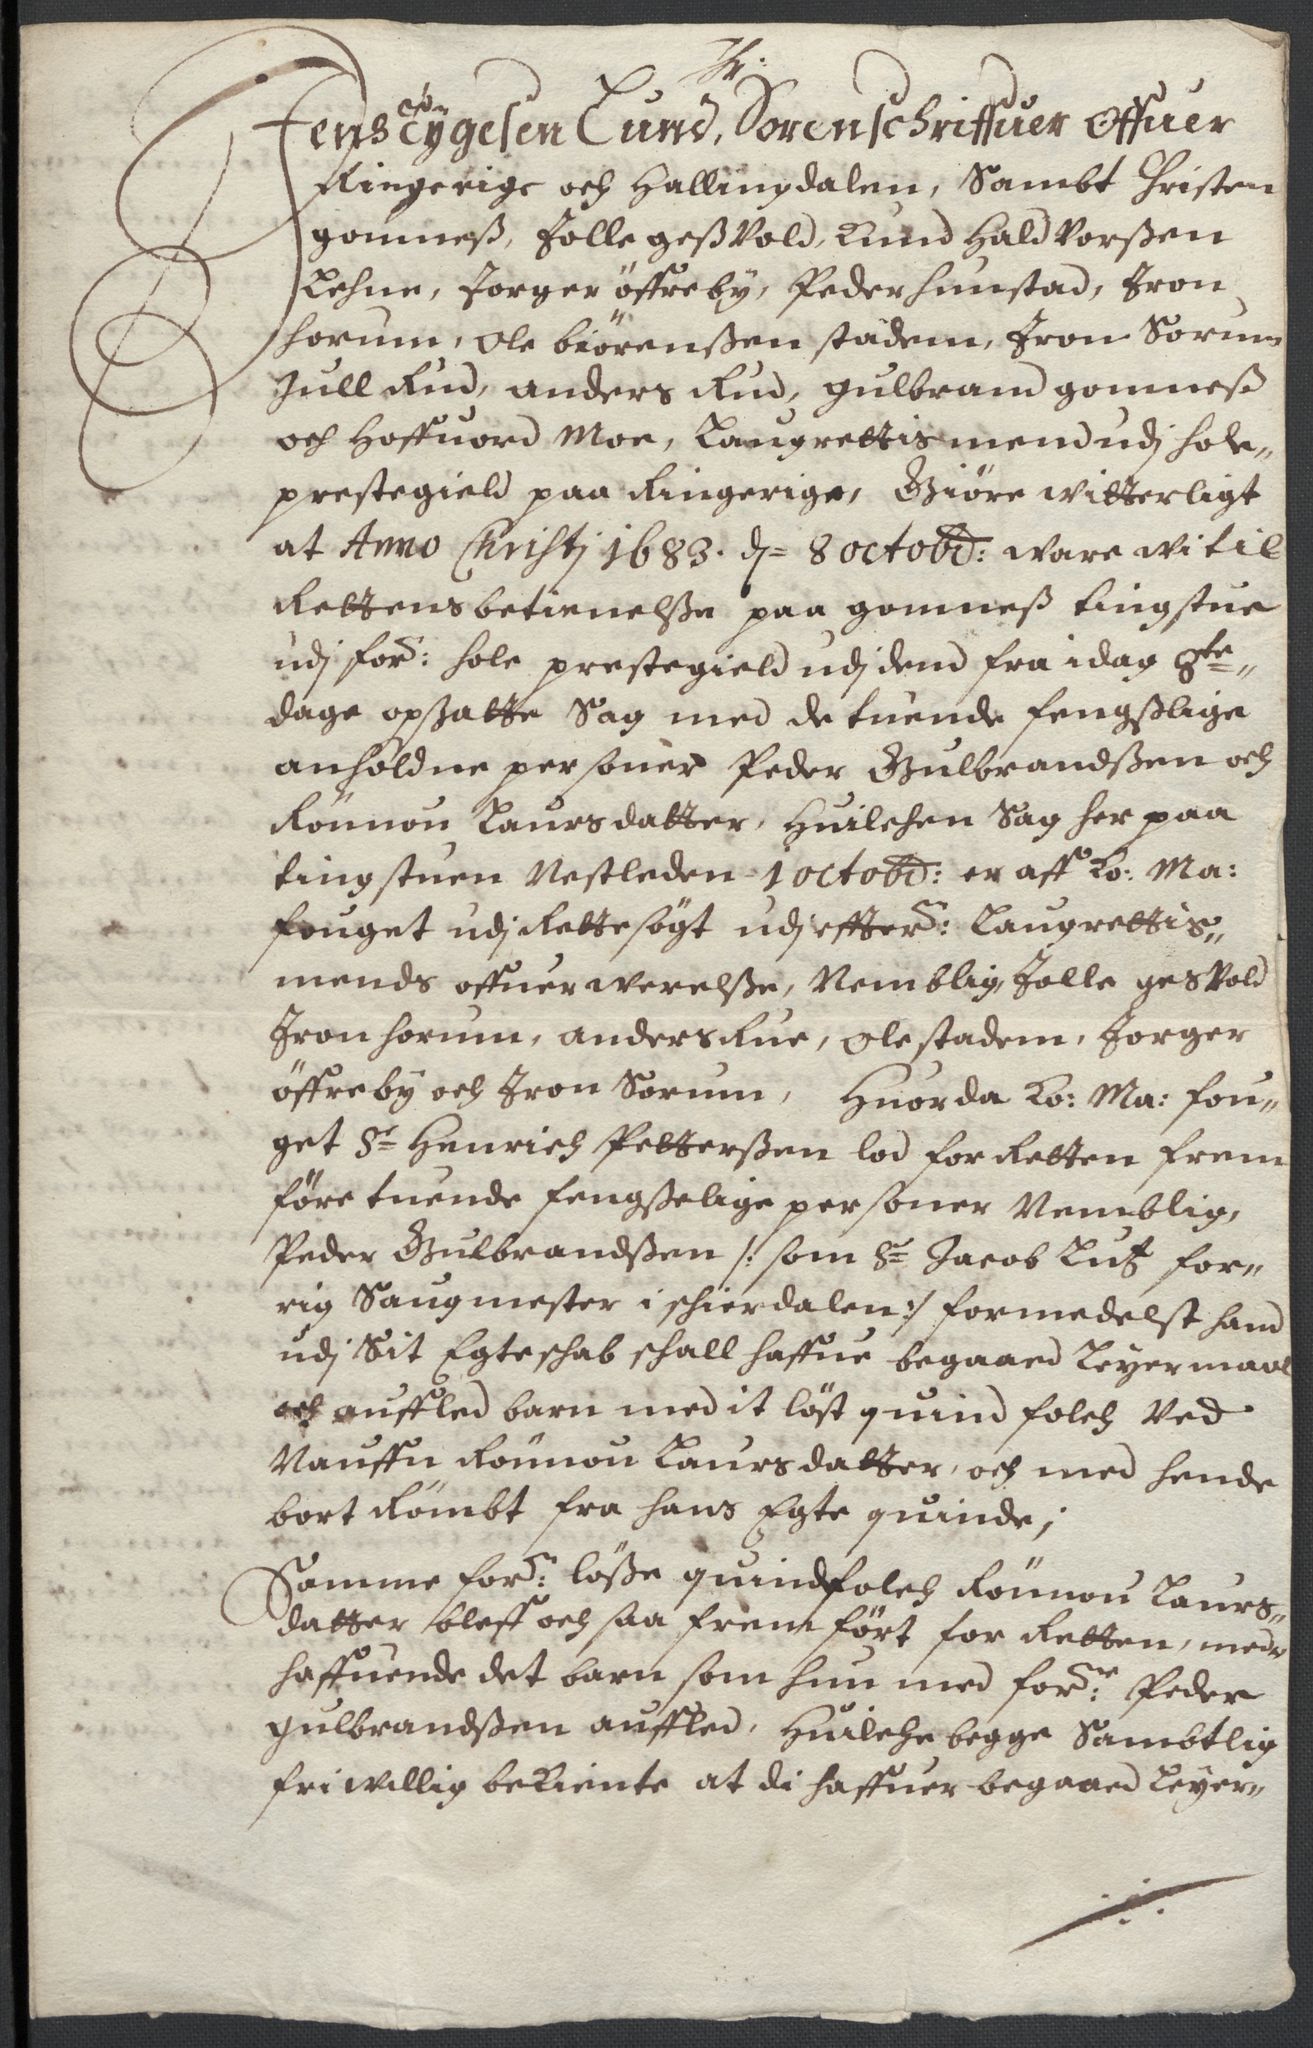 Jens Tygesen Lund, Sorenschriffuer Offuer
Ringerige och Hallingdalen, Sambt Christen
gomneß, Jolle geßVold, Knud HaldVorßen
Lehne, Jorger öffreby, Peder hunstad, Iron
horum, Ole biörenßen stadem, Iron Sorum
Jull Rud, anders Rud, gulbrand gomneß
och Hoffuord Moe, Laugrettis mend udj hole„
prestegield paa Ringerige, Giöre witterligt
at Anno Christj 1683. d= 8 octobr: ware wi til
Rettens betienelße paa gomneß tingstue
udj for: hole prestegield udj dend fra idag 8te„
dage opsatte Sag med de tuende fengßlige
anholdne personer Peder Gulbrandßen och
Rönnou Laursdatter, Huilchen Sag her paa
tingstuen Nestleden 1 octobr: er aff Ko: Ma:
fouget udj Rette sögt udj effter: Laugrettis„
mends offuerwerelße, Nemblig, Jolle gesVold
Iron horum, anders Rue, Ole stadem, Jorger
öffreby och Iron Sorum, Huorda Ko: Ma: fou„
get Sr= Henrich Petterßen lod for Retten frem
före tuende fengßelige personer Nemblig,
Peder Gulbrandßen /: som Sr= Jacob Lutz for„
rig Saugmester i schierdalen :/ formedelst hand
udj Sit Egteschab schall haffue begaaed Leyermaal
och aufled barn med it löst quindfolch Ved
Nauffn Rönnou Laursdatter, och med hende
bort Römbt fra hans Egte quinde;
Samme for: löße quindfolch Rönnou Laurs„
datter bleff och saa frem fört for Retten, med
haffuende det barn som hun med for: Peder
gulbrandßen aufled, Huilche begge Sambtlig
friwillig bekiente at di haffuer begaaed Leyer„